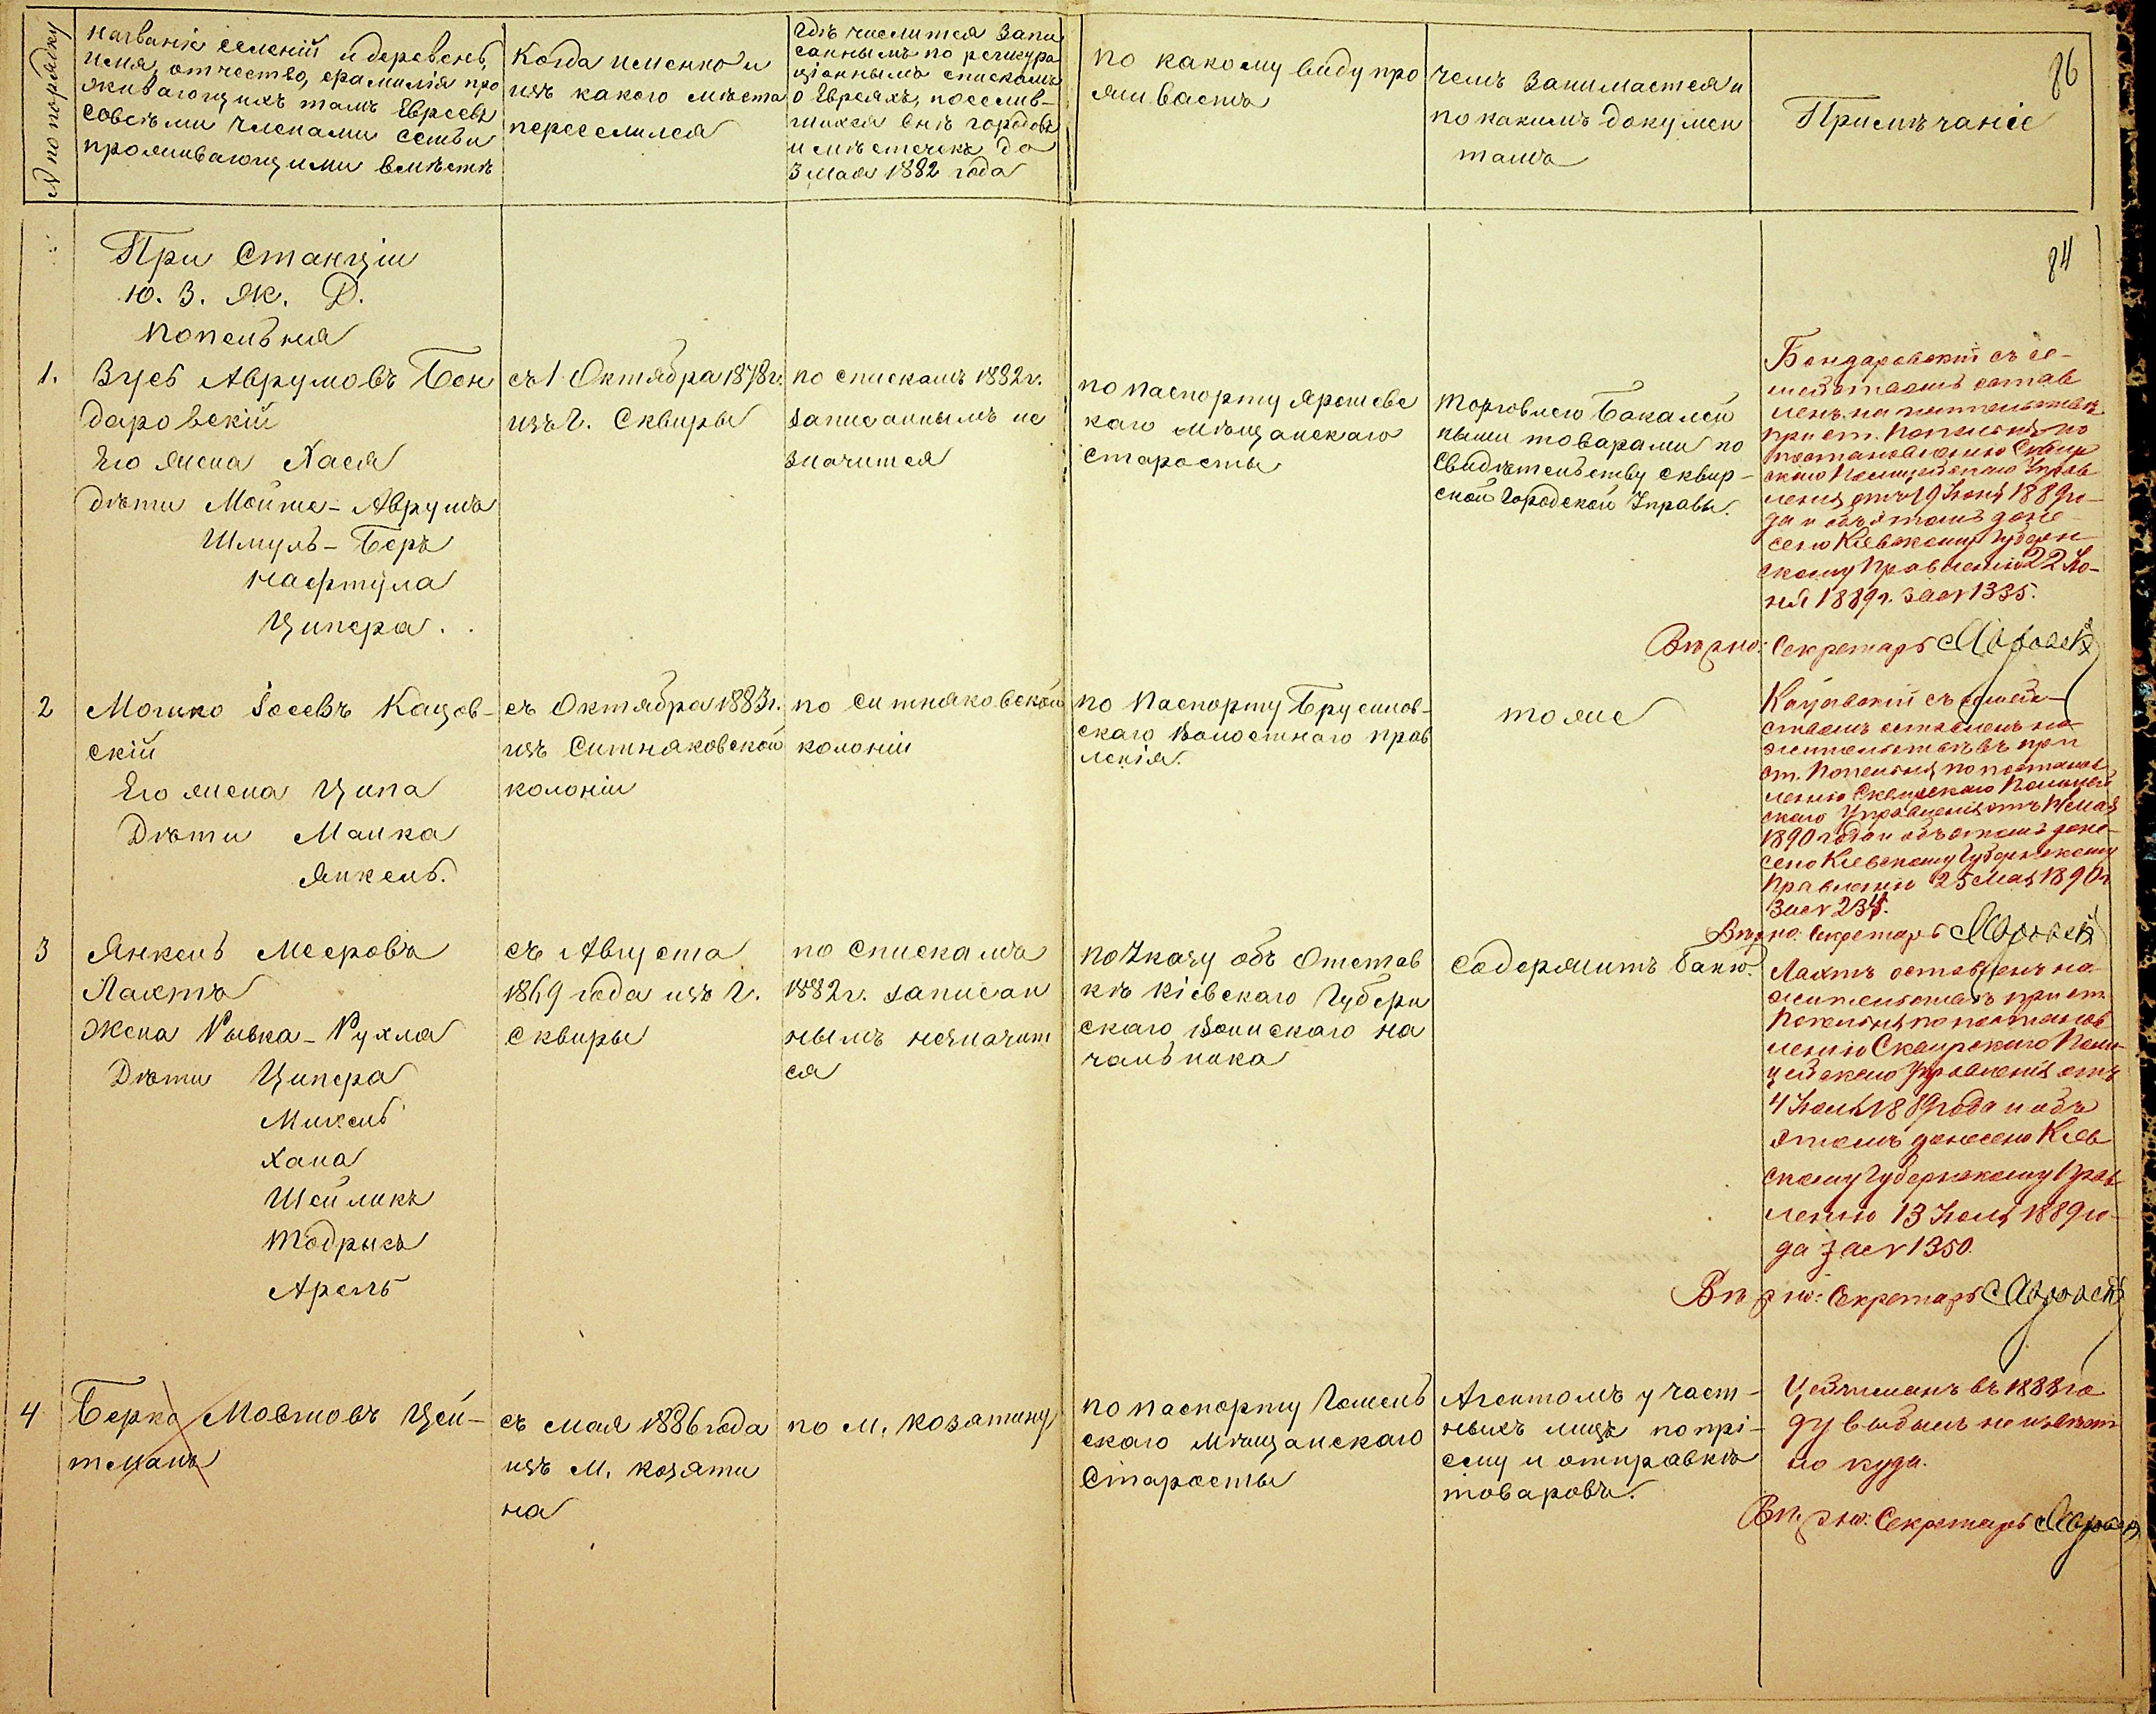 № по порядку
Названіе селеній и деревень,
имя, отчество, фамилія про
живающихъ тамъ Евреевъ
совсѣми членами семьи
проживающими вмѣстѣ
Когда именно и
изъ какого мѣста
переселился
Гдѣ числится запи
саннымъ по регистра
ціоннымъ спискамъ
о Евреяхъ, поселив-
шихся внѣ городовъ
и мѣстечекъ до
3 мая 1882 года
по какому виду про
живаетъ
чемъ занимается и
по какимъ докумен
тамъ
Примѣчаніе
86
84
При Станціи
Ю. З. Ж. Д.
Попельня
1.
Вуеб Аврумовъ Бон
даровскій
Его жена Хася
дѣти Мойше-Аврумъ
Шмуль-Беръ
Нафтула
Ципера.
съ 1 Октября 1878 г.
изъ г. Сквиры
по спискамъ 1882 г.
записаннымъ не
значится
по паспорту Ярошевс
каго мѣщанскаго
старосты
Торговлею бакалей
ными товарами по
свидѣтельству сквир-
ской Городской Управы.
Бондаровскій съ се-
мействомъ остав
ленъ на жительствѣ
при ст. Попельня по
постановленію Сквир
скаго Полицейскаго Управ
ленія отъ 19 Іюня 1889 го-
да и объ этомъ доне-
сено Кіевскому Губерн
скому Правленію 22 Ію-
ня 1889 г. за № 1335.
Вѣрно: Секретарь
2
Мошко Іосевъ Кацов-
скій
Его жена Ципа
Дѣти Малка
Янкель.
съ Октября 1883 г.
изъ Ситняковской
колоніи
по ситняковской
колоніи
по Паспорту Брусилов-
скаго Волостнаго прав
ленія.
тоже
Кацовскій съ семей-
ствомъ оставленъ на
жительствѣ при
ст. Попельня по постанов
ленію Сквирскаго Полицей
скаго Управленія отъ Мая
1890 года и объ этомъ доне-
сено Кіевскому Губернскому
Правленію 25 Мая 1890 г.
за №
Вѣрно: Секретарь
3
Янкель Мееровъ
Лахтъ
Жена Рывка-Рухля
Дѣти Ципера
Михель
Хана
Шейликъ
Тодрысъ
Арель
съ Августа
1869 года изъ г.
Сквиры
по спискамъ
1882 г. записан
нымъ незначит
ся
по Указу объ Отстав
кѣ Кіевскаго Губерн
скаго Воинскаго на
чальника
содержитъ баню.
Лахтъ оставленъ на
жительствѣ при ст.
Попельня по постанов
ленію Сквирскаго Поли-
цейскаго Управленія отъ
4 Іюля 1889 года и объ
этомъ донесено Кіев
скому Губернскому Прав
ленію 13 Іюля 1889 го-
да за № 1350.
Вѣрно: Секретарь
4
Берко Мовшовъ Цей-
тманъ
съ мая 1886 года
изъ м. Козяти
на
по м. Козятину
по паспорту Гомель
скаго Мѣщанскаго
Старосты
Агентомъ у част-
ныхъ лицъ по прі-
ему и отправкѣ
товаровъ.
Цейтманъ въ 1888 го
ду выбылъ неизвѣст
но куда.
Вѣрно: Секретарь